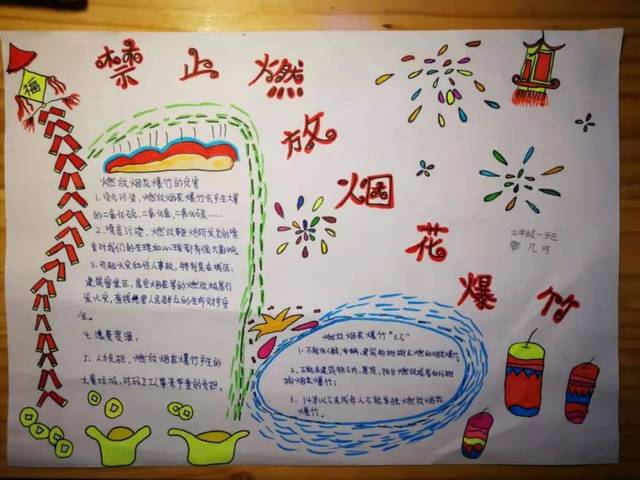 禁止燃放烟花爆竹
福
二年级一班
郭凡可
燃放烟花爆竹的危害
1、空气污染，燃放烟花爆竹会产生大量
的二氧化硫、二氧化氮、二氧化碳……
2、噪音污染，燃放鞭炮所发出的噪
音对我们的生理和心理都有很大影响。
3、引起火灾和伤人事故，特别是在城区、
建筑密集区，高空烟花等的燃放极易引
发火灾，直接危害人民群众的生命财产安
全。
4、浪费资源；
5、人力负担，燃放烟花爆竹产生的
大量垃圾，对环卫工人带来严重的负担。
燃放烟花爆竹"三不"
1、不能向人群、车辆、建筑物抛掷点燃的烟花爆竹；
2、不能在建筑物上的、屋顶、阳台燃放或者向外抛
掷烟花爆竹；
3、14岁以下未成年人不能单独燃放烟花
爆竹。